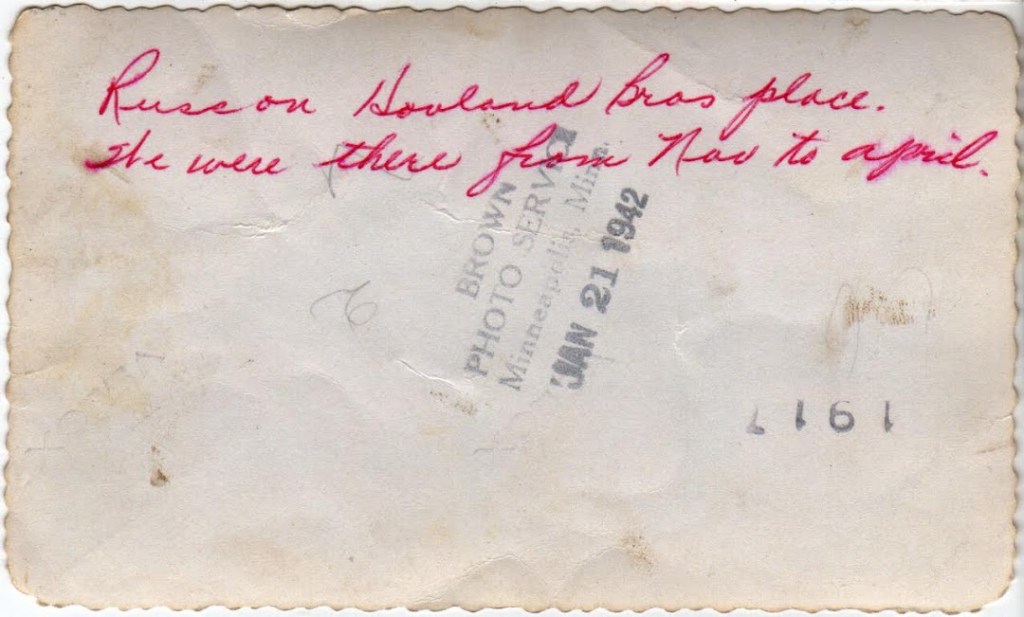 Russ on Hovland Bros place.
We were there from Nov to april.
BROWN
PHOTO SERVICE
Minneapolis, Minn.
JAN 21 1942
1917